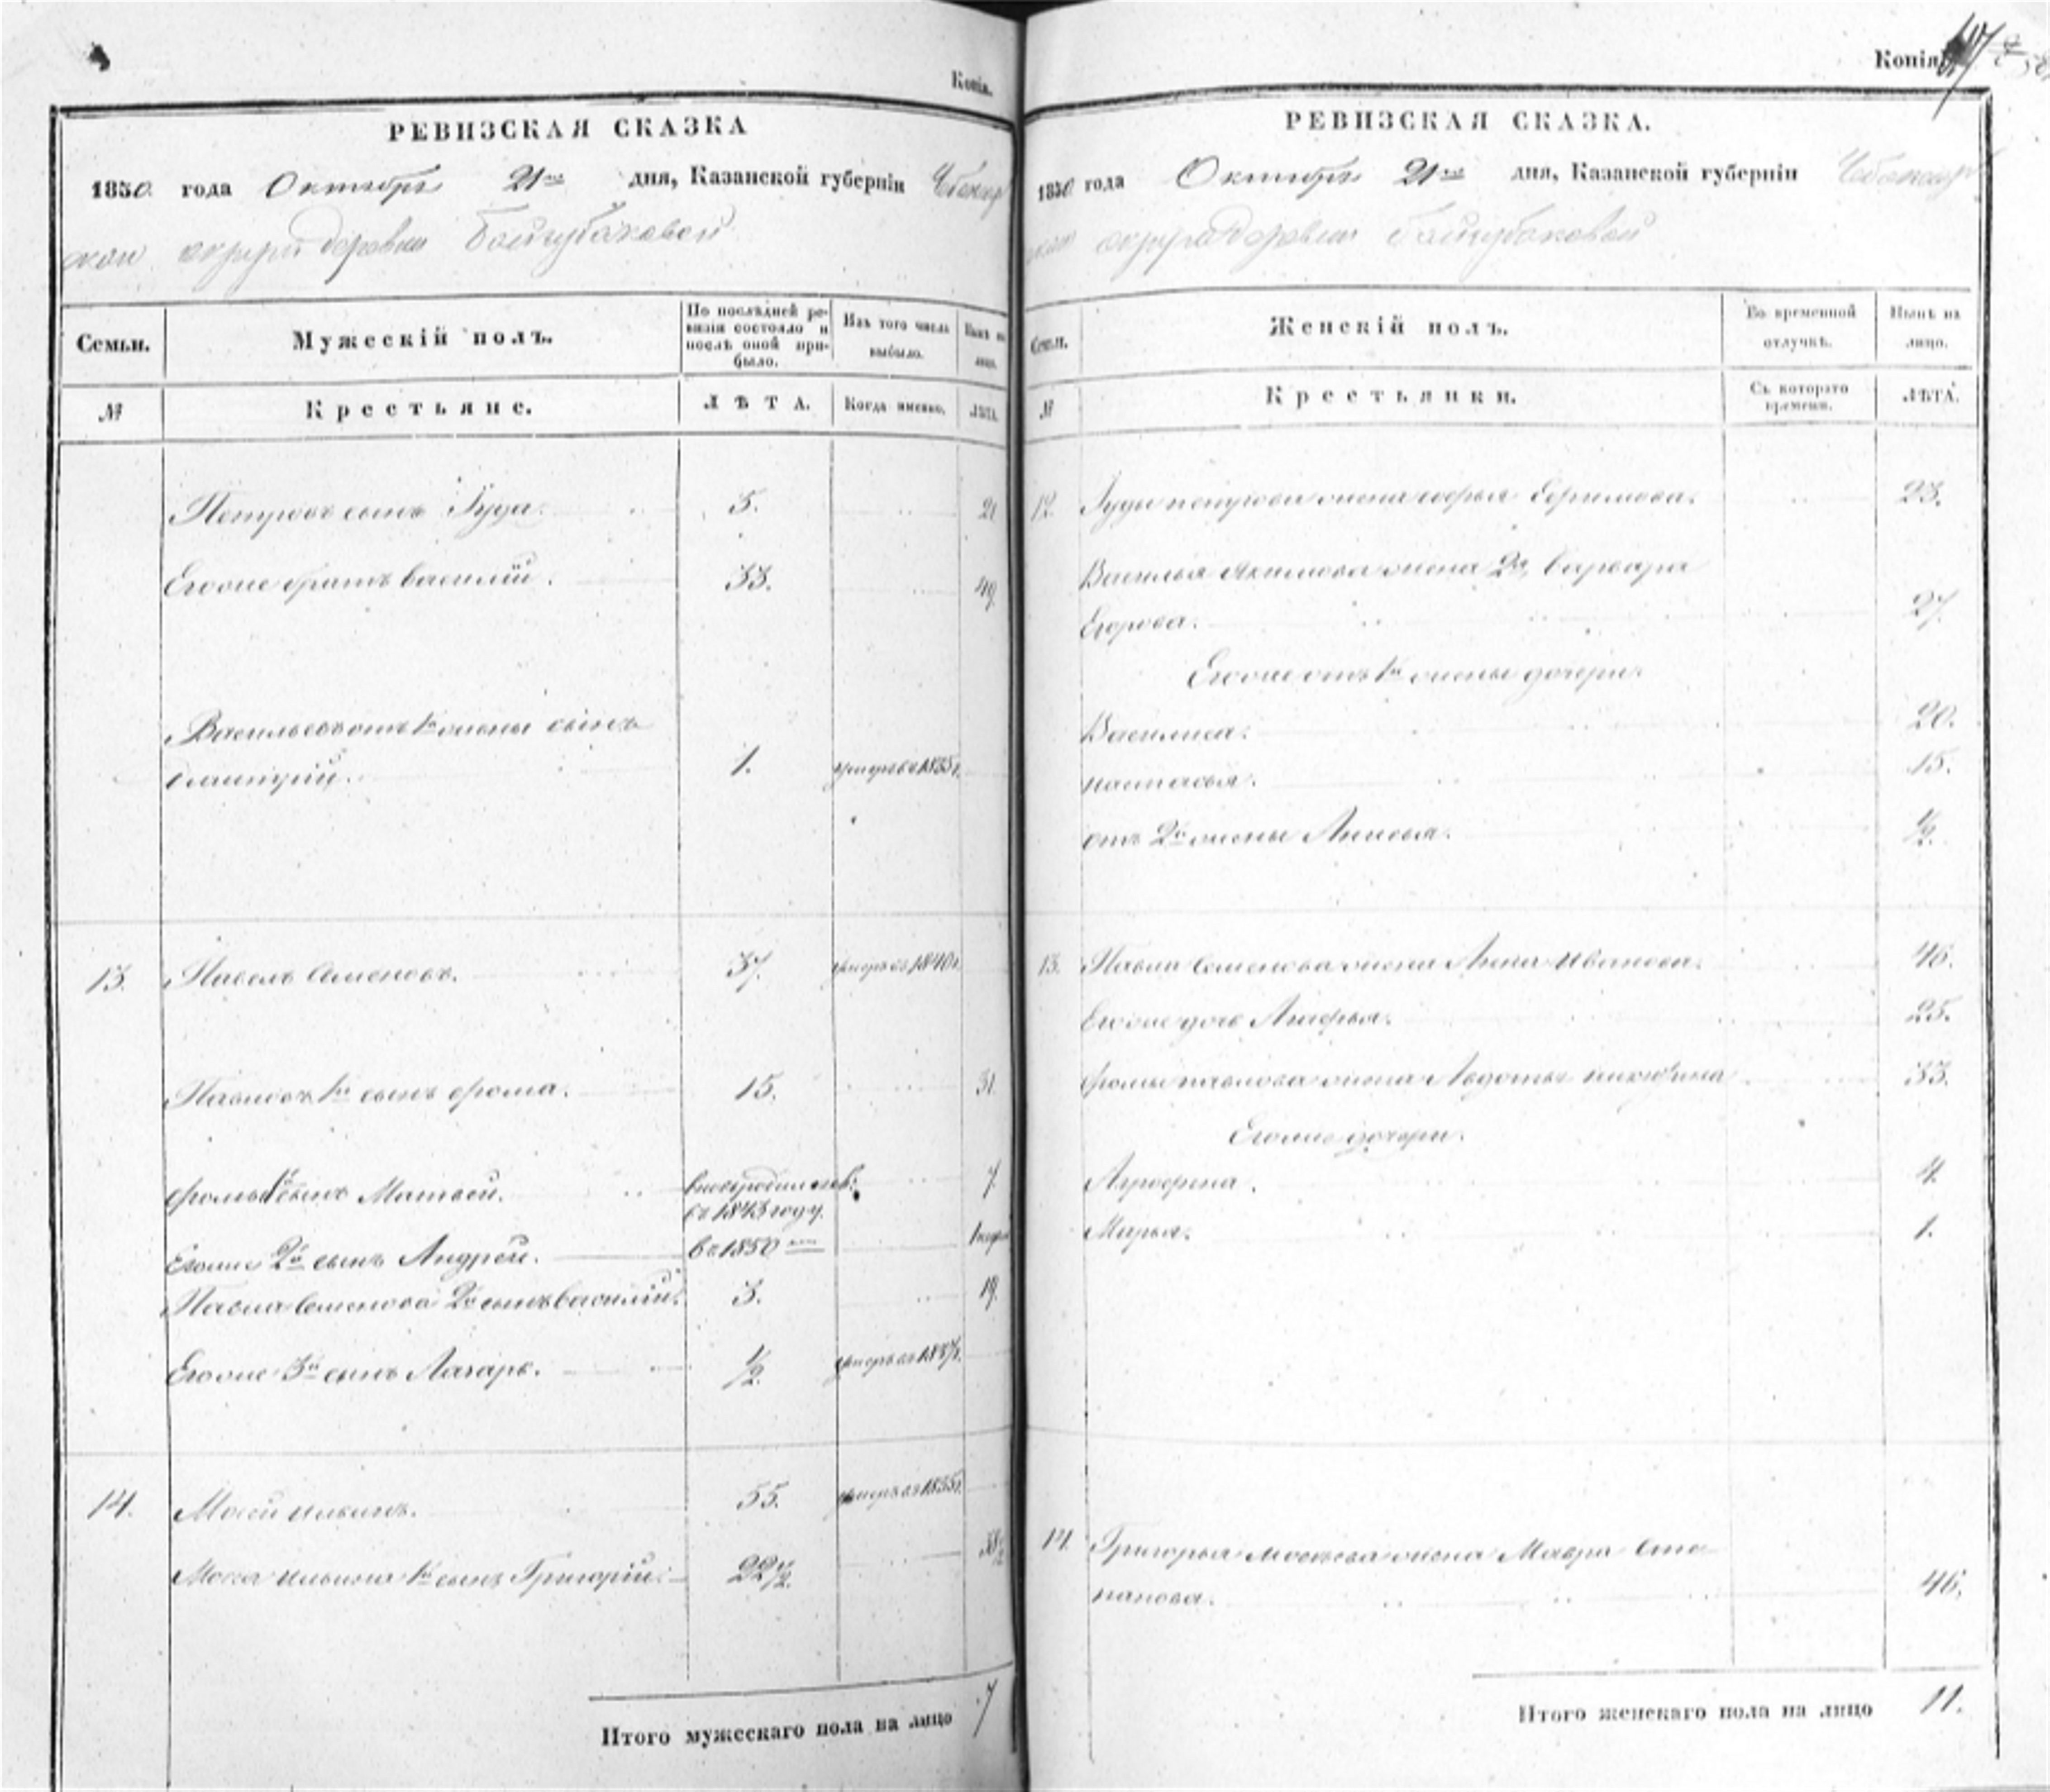 Копія.
РЕВИЗСКАЯ СКАЗКА
1850 года Октября 21го дня, Казанской губерніи Чебоксар
ской округи деревни
Семьи.
Мужескій полъ.
По послѣдней ре-
визіи состояло и
послѣ оной при-
было.
Изъ того числа
выбыло.
Нынѣ на
лицо.
№
Крестьяне.
ЛѢТА.
Когда именно.
ЛѢТА.
Петровъ сынъ Іуда. 5. 21
Егоже братъ Василій. 33. 49.
Васильевъ отъ 1й жены сынъ
Дмитрій. 1. умеръ въ 1835 г.
13. Павелъ Семеновъ. 37. умеръ въ 1840 г.
Павловъ 1й сынъ Фрома. 15. 31.
Фромы 1й сынъ Матвей. 7.
въ 1843 году.
Егоже 2й сынъ Андрей. въ 1850
Павла Семенова 2й сынъ Василій. 3. 19.
Егоже 3й сынъ Лазарь. 1/2. умеръ въ 1837 г.
14. Мосей Ильинъ. 55. умеръ въ 1835 г.
Мосея Ильина 1й сынъ Григорій. 22 1/2. 38 1/2
Итого мужескаго пола на лицо 7
Копія
РЕВИЗСКАЯ СКАЗКА.
1850 года Октября 21го дня, Казанской губерніи Чебоксар
ской округи деревни
Семьи.
Женскій полъ.
Во временной
отлучкѣ.
Нынѣ на
лицо.
№
Крестьянки.
Съ котораго
времени.
ЛѢТА.
12. Іуды Петрова жена Софья Ефимова. 23.
Василья Акимова жена 2я, Варвара
Егорова. 27.
Егоже отъ 1й жены дочери.
Василиса. 20.
Настасья. 15.
отъ 2й жены Анисья. 1/2.
13. Павла Семенова жена Анна Иванова. 46.
Егоже дочь 25.
Фромы Павлова жена Авдотья 33.
Егоже дочери.
Агрофена. 4.
Марья. 1.
14. Григорья Мосеева жена Мавра Сте-
панова. 46.
Итого женскаго пола на лицо 11.